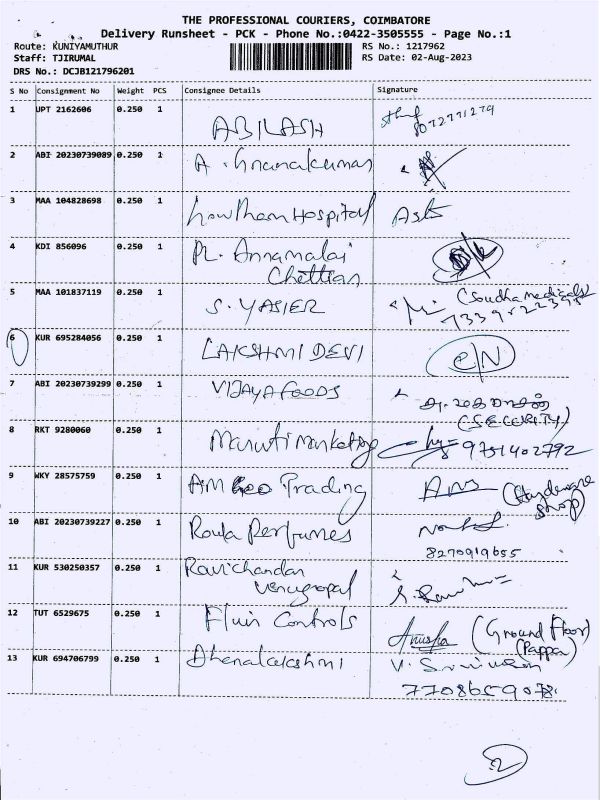 THE PROFESSIONAL COURIERS, COIMBATORE
Delivery Runsheet - PCK - Phone No.:0422-3505555 - Page No.:1
Route: KUNIYAMUTHUR RS No.: 1217962
Staff: TJIRUMAL RS Date: 02-Aug-2023
DRS No.: DCJB121796201
S No Consignment No Weight PCS Consignee Details Signature
1 UPT 2162606 0.250 1 ABILASH
2 ABI 20230739089 0.250 1 A. Gnanakumar
3 MAA 104828698 0.250 1 Gowtham Hospital
4 KDI 856096 0.250 1 PL. Annamalai
Chettiar
5 MAA 101837119 0.250 1 S. YASIER (Soudha medicals)
6 KUR 695284056 0.250 1 LAKSHMI DEVI C/N
7 ABI 20230739299 0.250 1 VIJAYA FOODS
(SECURITY)
8 RKT 9280060 0.250 1 Maruti Marketing 9751402792
9 WKY 28575759 0.250 1 Trading shop)
10 ABI 20230739227 0.250 1 Perfumes
8270919655
11 KUR 530250357 0.250 1 Ravichandar
Venugopal
12 TUT 6529675 0.250 1 Fluin Controls Anusha (Ground Floor)
(Pappa)
13 KUR 694706799 0.250 1 Dhanalakshmi V. Srinivasan
7708659078
2